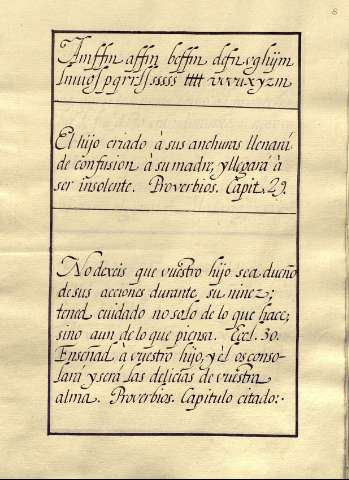 8
Amffm affin beffm defn vghijm
lnuio ſpqrrſſsssss tttt vvvuxyzm
El hijo criado à sus anchuras llenará
de confusion à su madre, y llegará à
ser insolente. Proverbios. Capit. 29.
No dexeis que vuestro hijo sea dueño
de sus acciones durante su ninez;
tened cuidado no solo de lo que hace;
sino aun de lo que piensa. Eccl. 30.
Enseñad à vuestro hijo, y èl os conso-
lará y será las delicias de vuestra
alma. Proverbios. Capitulo citado:·